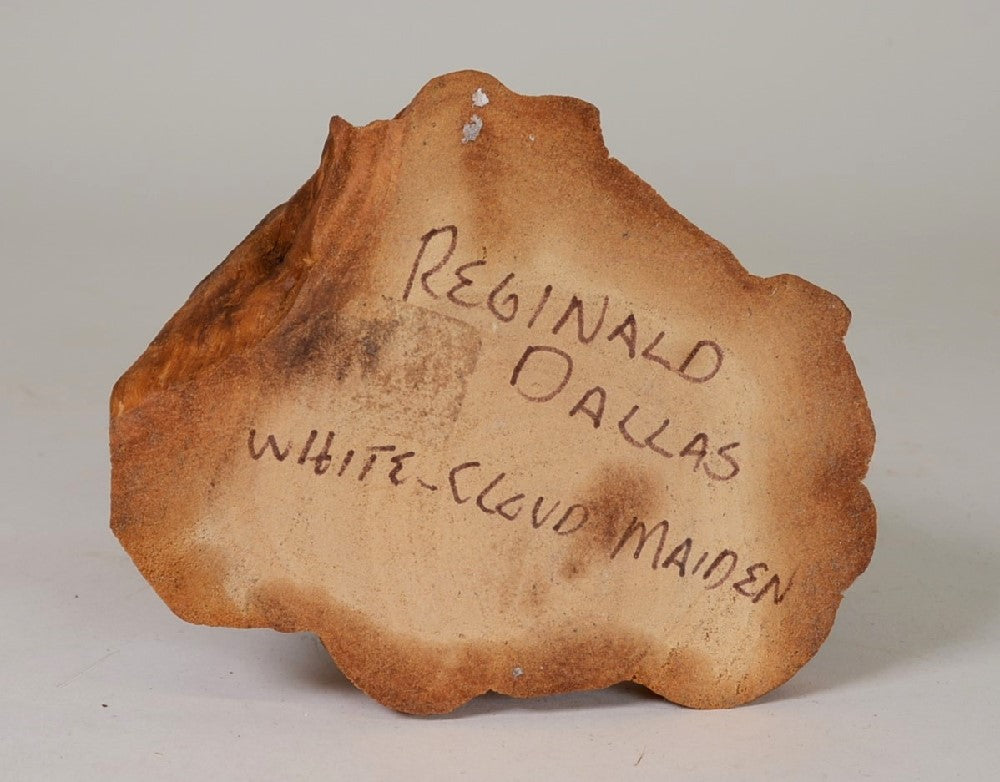 REGINALD
DALLAS
WHITE-CLOUD MAIDEN